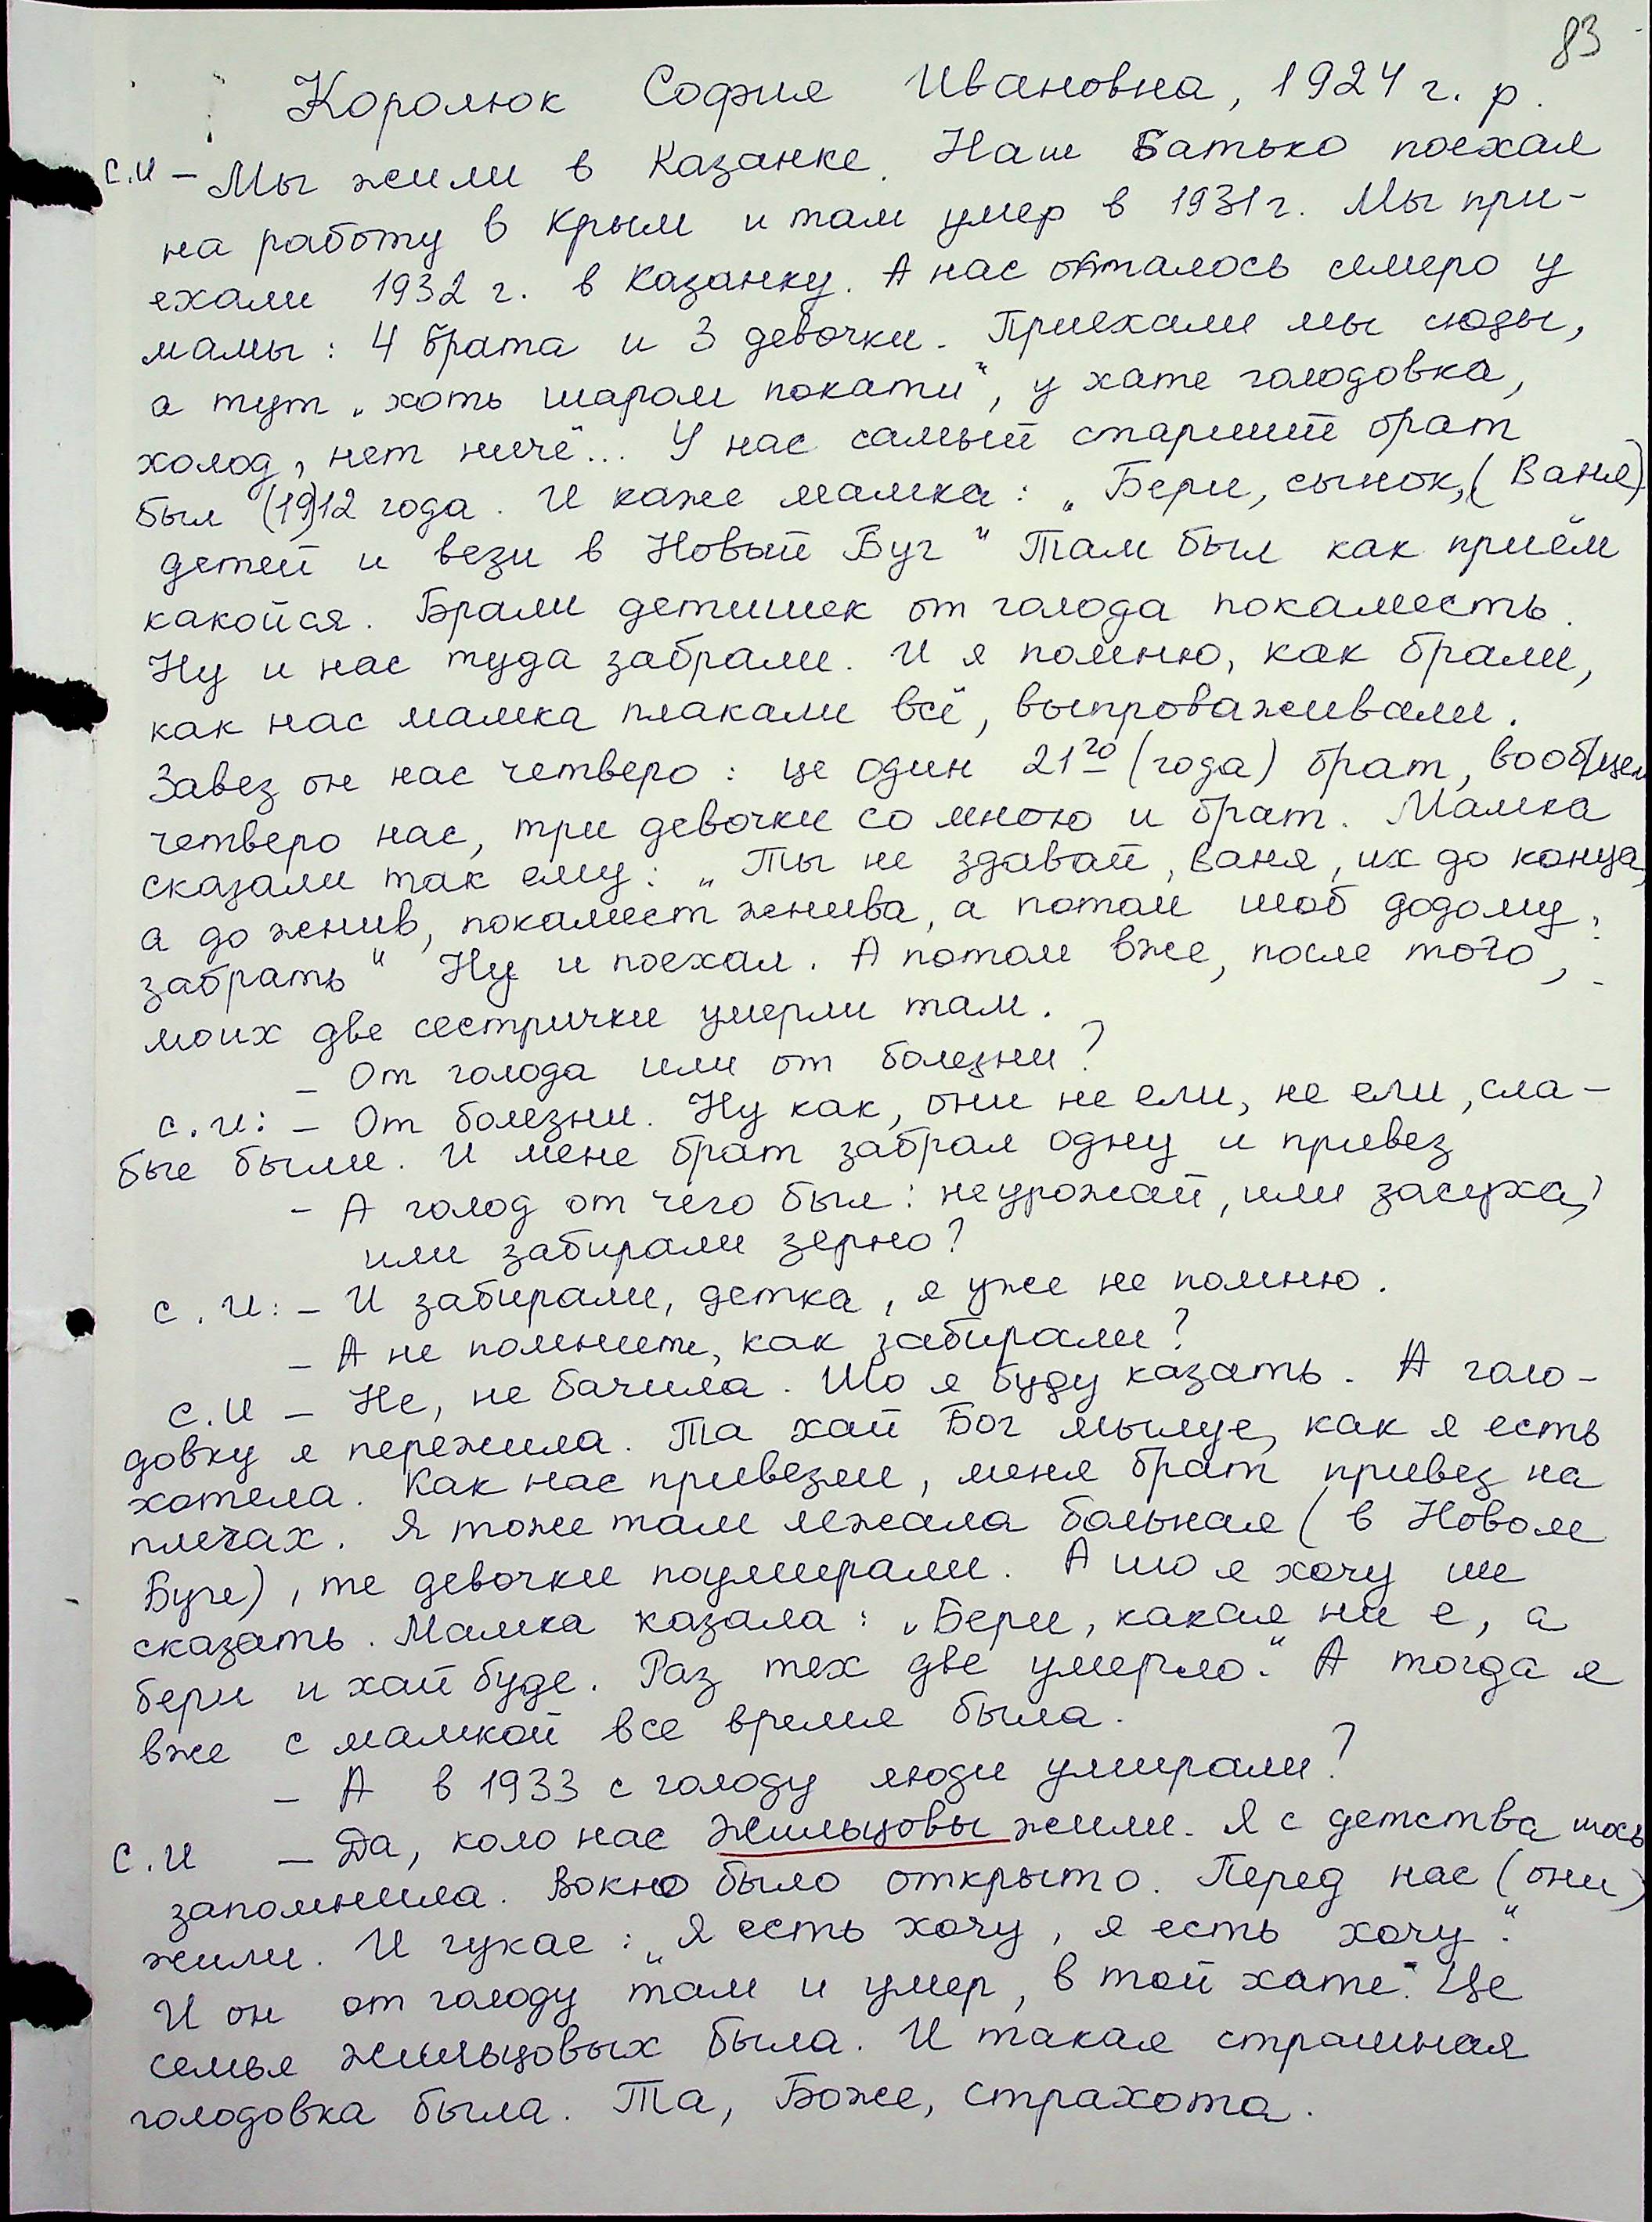 83
Королюк София Ивановна, 1924 г. р.
С.И – Мы жили в Казанке. Наш батько поехал
на работу в Крым и там умер в 1931 г. Мы при-
ехали 1932 г. в Казанку. А нас осталось семеро у
мамы: 4 брата и 3 девочки. Приехали мы сюды,
а тут „хоть шаром покати", у хате голодовка,
холод, нет ничё... У нас самый старший брат
был (19)12 года. И каже мамка: „Бери, сынок, (Ваня)
детей и вези в Новый Буг" Там был как приём
какойся. Брали детишек от голода покаместь.
Ну и нас туда забрали. И я помню, как брали,
как нас мамка плакали всё, выпроваживали.
Завез он нас четверо: це один 21го (года) брат, вообщем
четверо нас, три девочки со мною и брат. Мамка
сказали так ему: „Ты не здавай, Ваня, их до конца,
а до жнив, покамест жнива, а потом шоб додому,
забрать" Ну и поехал. А потом вже, после того,
моих две сестрички умерли там.
– От голода или от болезни?
С.И: – От болезни. Ну как, они не ели, не ели, сла-
бые были. И мене брат забрал одну и привез
– А голод от чего был: неурожай, или засуха,
или забирали зерно?
С.И: – И забирали, детка, я уже не помню.
– А не помните, как забирали?
С.И – Не, не бачила. Шо я буду казать. А голо-
довку я пережила. Та хай Бог мылуе, как я есть
хотела. Как нас привезли, меня брат привез на
плечах. Я тоже там лежала больная (в Новом
Буге), те девочки поумерали. А шо я хочу ше
сказать. Мамка казала: „Бери, какая ни е, а
бери и хай буде. Раз тех две умерло." А тогда я
вже с мамкой все время была.
– А в 1933 с голоду люди умирали?
С.И – Да, коло нас Жильцовы жили. Я с детства шось
запомнила. Вокно было открыто. Перед нас (они)
жили. И гукае: „Я есть хочу, я есть хочу".
И он от голоду там и умер, в той хате. Це
семья Жильцовых была. И такая страшная
голодовка была. Та, Боже, страхота.